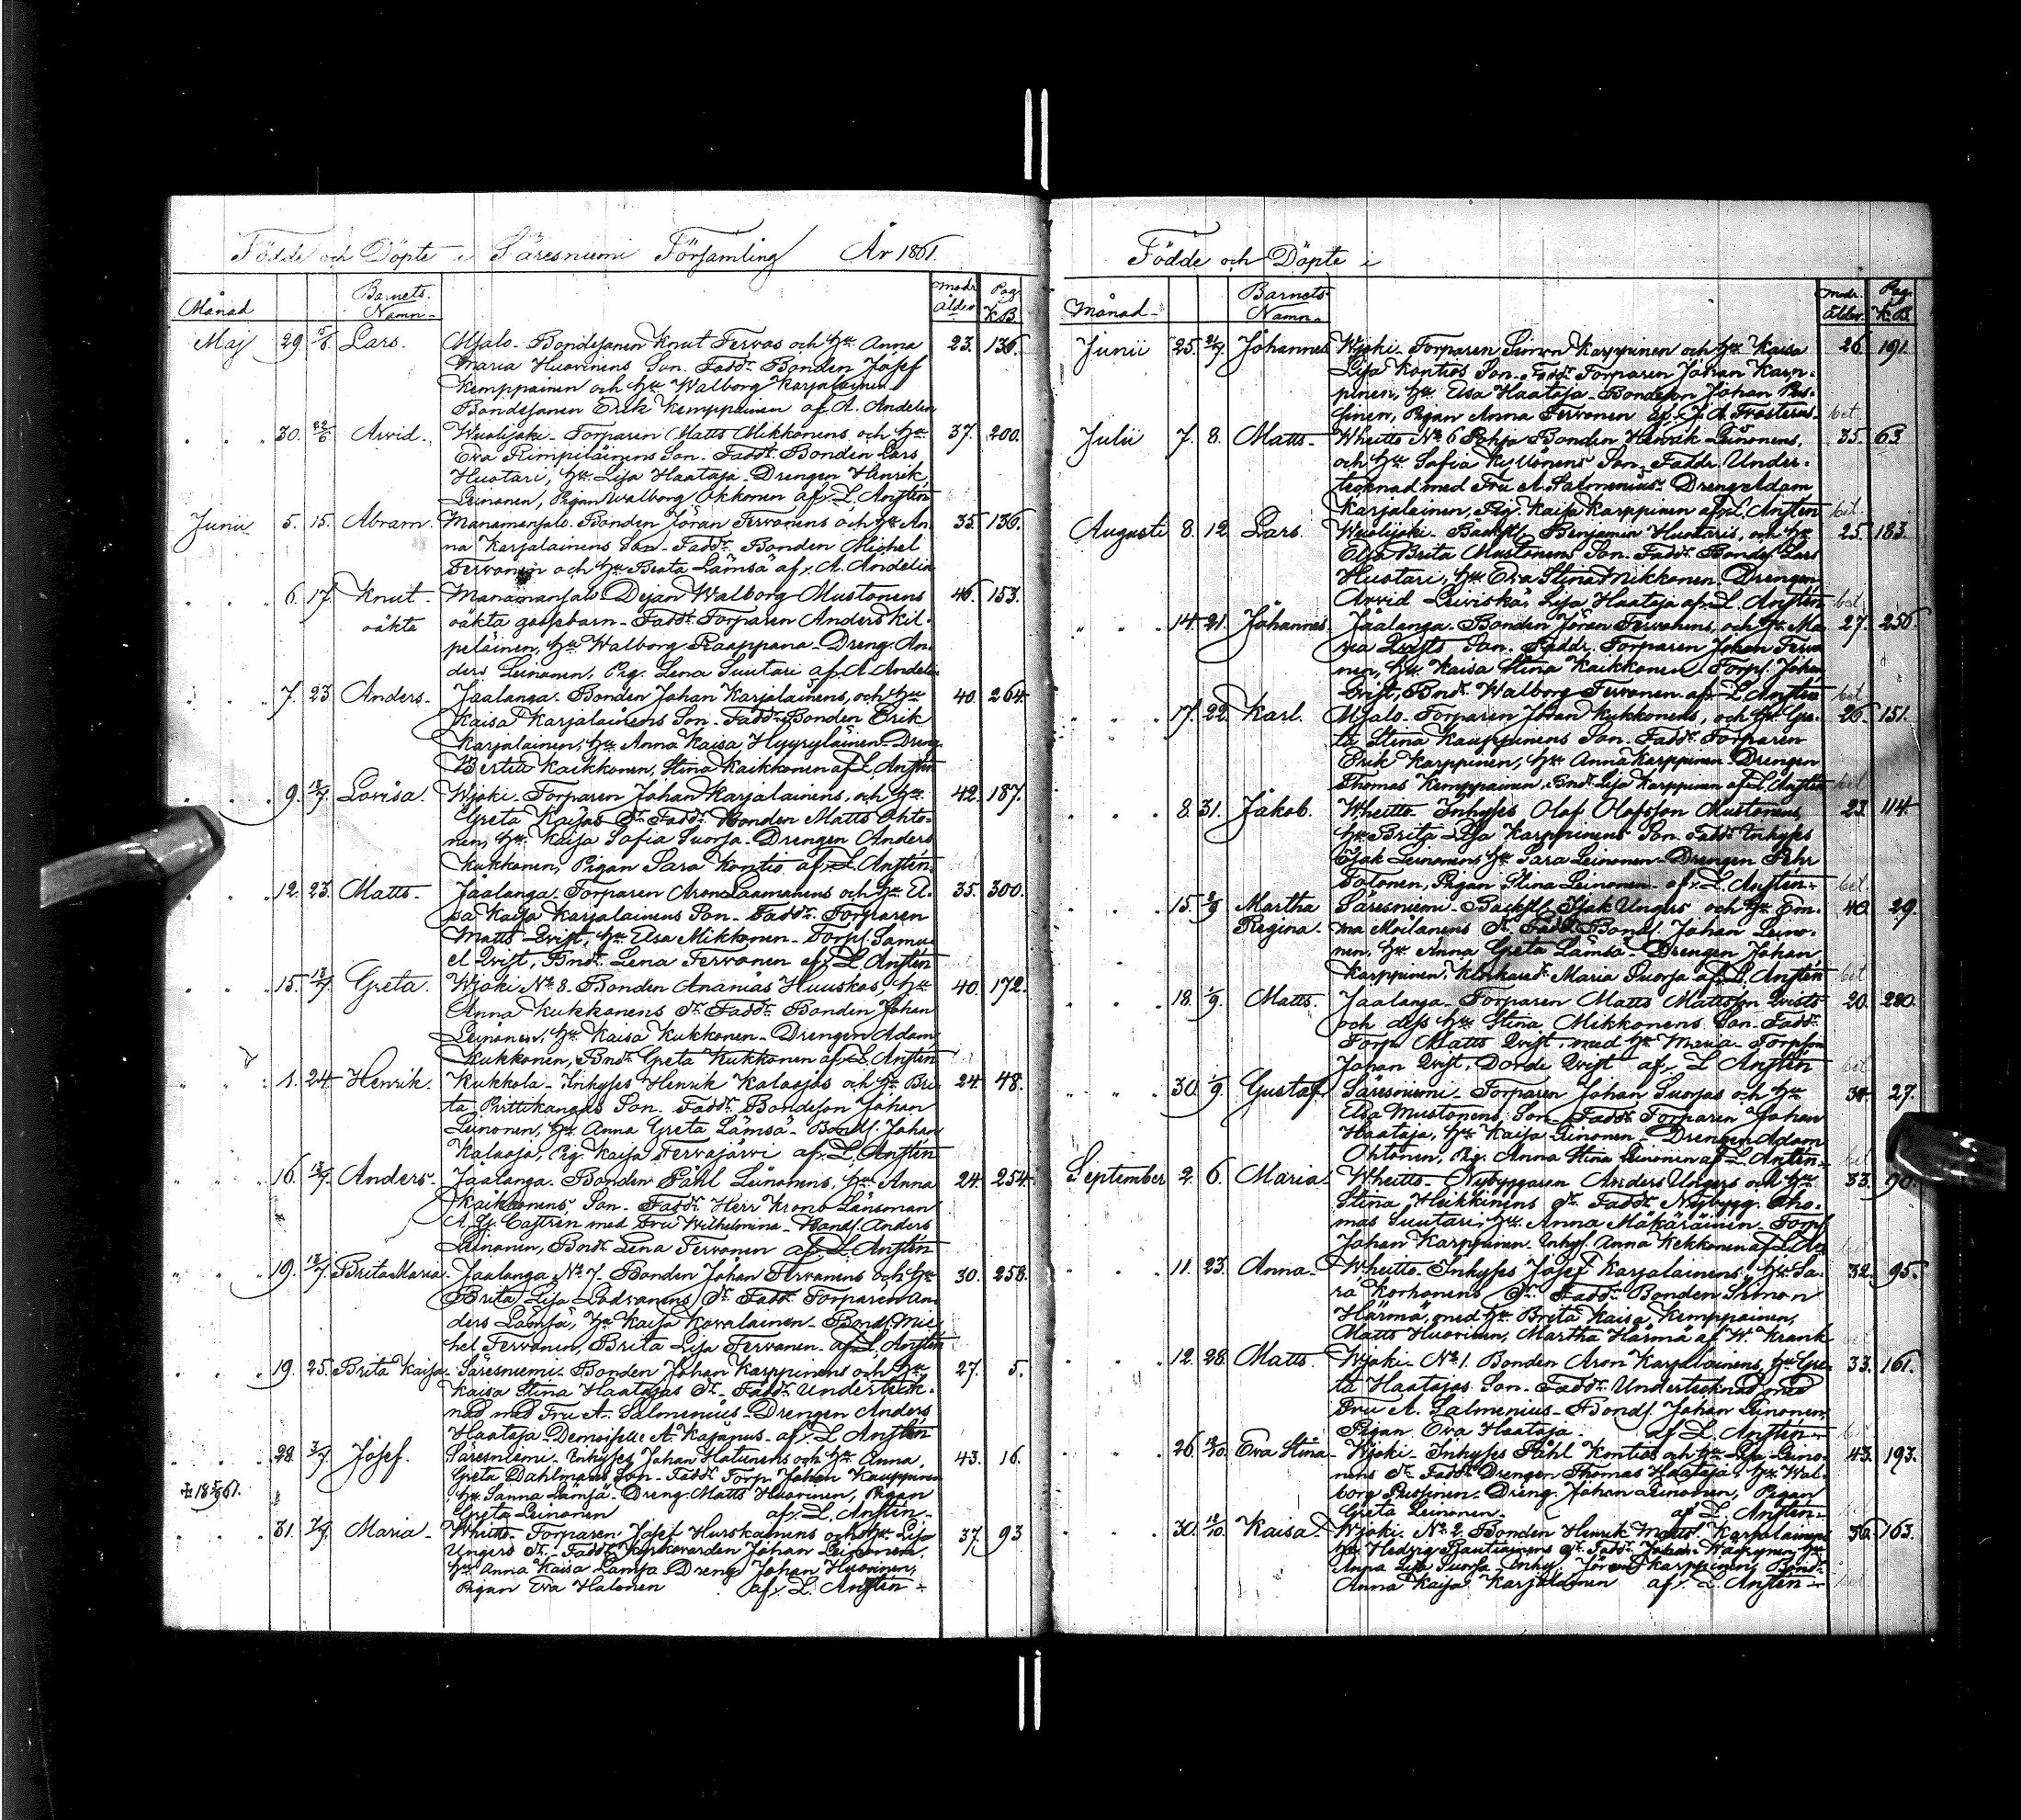 Födde och Döpte i Säresniemi Församling År 1861.
Månad Barnets Namn Modr ålder Pag. K.B.
Maj 29. 5/6 Lars. Mjalo- Bondesonen Knut Tervos och hu Anna 23. 136.
Maria Huovinens Son. Faddr Bonden Josef
Kemppainen och hu Walborg Karjalainen
Bondesonen Erik Kemppainen af A. Andelin
" " 30. 22/6 Arvid. Wuolijoki- Torparen Matts Mikkonens och hu 37. 200.
Eva Rimpiläinens Son. Faddr. Bonden Lars
Huotari, hu Lisa Haataja- Drengen Henrik
Leinonen, Pigan Walborg Okkonen af L. Anstén
Junii 5. 15. Abram. Manamansalo. Bonden Jöran Tervonens och hu An- 35. 136.
na Karjalainens Son- Faddr. Bonden Michel
Tervonen och hu Beata Lämsä af A. Andelin
" " 6. 17. Knut- Manamansalo Pigan Walborg Mustonens 46. 153.
oäkta oäkta gossbarn- Faddr Torparen Anders Kil-
peläinen, hu Walborg Raappana- Dreng. An-
ders Leinonen, Pig. Lena Suutari af A Andelin
" " 7. 23 Anders- Jaalanga. Bonden Johan Karjalainens, och hu 40. 264.
Kaisa Karjalainens Son- Faddr Bonden Erik
Karjalainen, hu Anna Kaisa Hyyryläinen- Dreng.
Bertil Kaikkonen, Stina Kaikkonen af L. Anstén
" " 9. 13/7 Lovisa. Wjoki- Torparen Johan Karjalainens, och hu 42. 187.
Greta Kaisas Dr Faddr Bonden Matts Ohto-
nen, hu Kaisa Sofia Suorsa- Drengen Anders
Kukkonen, Pigan Sara Kontio af L. Anstén.
" " 12. 23. Matts- Jaalanga. Torparen Aron Laamanens och hu El- 35. 300.
sa Kaisa Karjalainens Son- Faddr. Torparen
Matts Qvist, hu Elsa Mikkonen- Torps. Samu-
el Qvist, Bndr. Lena Tervonen af L. Anstén
" " 15. 13/7 Greta. Wjoki No 8. Bonden Ananias Huuskos, hu 40. 172.
Anna Kukkonens Dr Faddr Bonden Johan
Leinonen, hu Kaisa Kukkonen- Drengen Adam
Kukkonen, Bndr Greta Kukkonen af L. Anstén
" " 1. 24 Henrik. Kukkola- Inhyses Henrik Kalaojas och hu Bri- 24 48.
ta Prittikangas Son. Faddr. Bondeson Johan
Leinonen, hu Anna Greta Lämsä- Bonds. Johan
Kalaoja, Pig. Kaisa Tervajärvi af L. Anstén
" " 16. 13/7 Anders- Jaalanga. Bonden Påhl Leinonens, hu Anna 24. 254.
Kaikkonens Son- Faddr. Herr Krono Länsman
A. G. Castrén med Fru Wilhelmina- Bonds. Anders
Leinonen, Bndr. Lena Tervonen af L. Anstén
" " 19. 13/7 Brita Maria- Jaalanga No 7. Bonden Johan Tervonens och hu 30. 258.
Brita Lisa Dr Faddr Torparen An-
ders Lämsä, hu Kaisa Kovalainen- Bonds. Mic-
hel Tervonen, Brita Lisa Tervonen- af L. Anstén
" " 19. 25. Brita Kaisa- Säresniemi- Bonden Johan Karppinens och hu 27. 5.
Kaisa Stina Haatajas Dr- Faddr. Underteck-
nad med Fru A. Salmenius- Drengen Anders
Haataja- Demoiselle A. Kajanus- af L. Anstén
" " 28. 3/7 Josef. Säresniemi- Inhyses Johan Hatunens och hu Anna 43. 16.
Greta Dahlmans Son- Faddr. Torp. Johan Kauppinen
hu Sanna Lämsä- Dreng. Matts Huovinen, Pigan
Greta Leinonen af L. Anstén-
" " 31. 7/7 Maria- Wheitto- Torparen Josef Hurskainens och hu Lisa 37. 93
Ungers Dr- Faddr. Kyrkovärden Johan Leinonen,
hu Anna Kaisa Lämsä. Dreng Johan Huovinen,
Pigan Eva Halonen af L. Anstén-
Födde och Döpte i
Månad- Barnets Namn- Modr. ålder. Pag. K.B.
Junii 25. 21/7 Johannes Wjoki- Torparen Simon Karppinen och hu Kaisa 26 191.
Lisa Kontios Son. Faddr Torparen Johan Karp-
pinen, hu Elsa Haataja- Bondeson Johan Pus-
sinen, Pigan Anna Tervonen af J. A. Frosterus- bet.
Julii 7. 8. Matts- Wheitto No 6 Pohja Bonden Henrik Leinonens, 35. 63
och hu Sofia Kyllönens Son. Faddr. Under-
tecknad med Fru A. Salmenius- Dreng Adam
Karjalainen, Pig. Kaisa Karppinen af L. Anstén bet.
Augusti 8. 12. Lars. Wuolijoki- Backstl. Benjamin Huotaris, och hu 25. 183.
Elsa Brita Mustonens Son. Faddr. Bonden Lars
Huotari, hu Eva Stina Mikkonen- Drengen
Arvid Leiviskä, Lisa Haataja af L. Anstén bet.
" " 14. 21. Johannes. Jaalanga- Bonden Jöran Tervonens, och hu Ma- 27. 256.
ria Qvists Son. Faddr. Torparen Johan Tervo-
nen, hu Kaisa Stina Kaikkonen. Torps. Johan
Qvist, Bndr. Walborg Tervonen af L. Anstén bet
" " 17. 22. Karl. Mjalo- Torparen Johan Kukkonens, och hu Gre- 26. 151.
ta Stina Kauppinens Son. Faddr Torparen
Erik Karppinen, hu Anna Karppinen Drengen
Thomas Kemppainen, Bndr Lisa Karppinen af L. Anstén bet
" " 8. 31. Jakob. Wheitto- Inhyses Olof Olofsson Mustonens, 23. 114.
hu Brita Lisa Karppinens Son. Faddr Inhyses
Isak Leinonens hu Sara Leinonen- Drengen Pehr
Tolonen, Pigan Stina Leinonen- af L. Anstén- bet.
" " 15. 2/9 Martha Säresniemi- Backstl. Isak Ungers och hu Em- 40. 29.
Regina. ma Moilanens Dr. Faddr. Bonds. Johan Leino-
nen, hu Anna Greta Lämsä- Drengen Johan
Karppinen, Klockaredr. Maria Suorsa af L. Anstén bet
" " 18. 1/9. Matts. Jaalanga- Torparen Matts Mattsson Qvists 20. 280.
och dess hu Stina Mikkonens Son. Faddr.
Torp. Matts Qvist med hu Maria- Torpson
Johan Qvist. Dorde Qvist af L Anstén bet
" " 30. 1/9. Gustaf Säresniemi- Torparen Johan Suorsas och hu 34 27.
Elsa Mustonens Son- Faddr. Torparen Johan
Haataja, hu Kaisa Leinonen- Drengen Adam
Ohtonen, Pig. Anna Stina Leinonen af L. Anstén- bet
September 2. 6. Maria. Wheitto- Nybyggaren Anders Ungers och hu 33. 90.
Stina Heikkinens Dr. Faddr. Nybygg. Tho-
mas Suutari, hu Anna Mäkäräinen- Torps.
Johan Karppinen- Inhys. Anna Kekkonen af L. An bet
" " 11. 23. Anna- Wheitto- Inhyses Josef Karjalainens hu Sa- 32. 95.
ra Korhonens Dr- Faddr. Bonden Simon
Härmä, med hu Brita Kaisa Kemppainen,
Matts Huovinen, Martha Härmä af W. Krank
" " 12. 28. Matts. Wjoki- No 1. Bonden Aron Karjalainens, hu Gre- 33. 161.
ta Haatajas Son- Faddr. Undertecknad med
Fru A. Salmenius- Bonds. Johan Leinonen,
Pigan Eva Haataja- af L. Anstén-
" " 26. 12/10. Eva Stina- Wjoki- Inhyses Påhl Kontios och hu Lisa Leino- 43. 193.
nens Dr. Faddr. Drengen Thomas Haataja, hu Wal-
borg Pussinen. Dreng. Johan Leinonen, Pigan
Greta Leinonen- af L. Anstén-
" " 30. 12/10. Kaisa. Wjoki- No 2. Bonden Henrik Matts. Karjalainens 36. 163.
hu Hedvig Rautiainens Dr. Faddr. Johan Wäyrynen, hu
Anna Lisa Suorsa- Inhys. Jöran Karppinen, Bondr.
Anna Kaisa Karjalainen af L. Anstén- bet